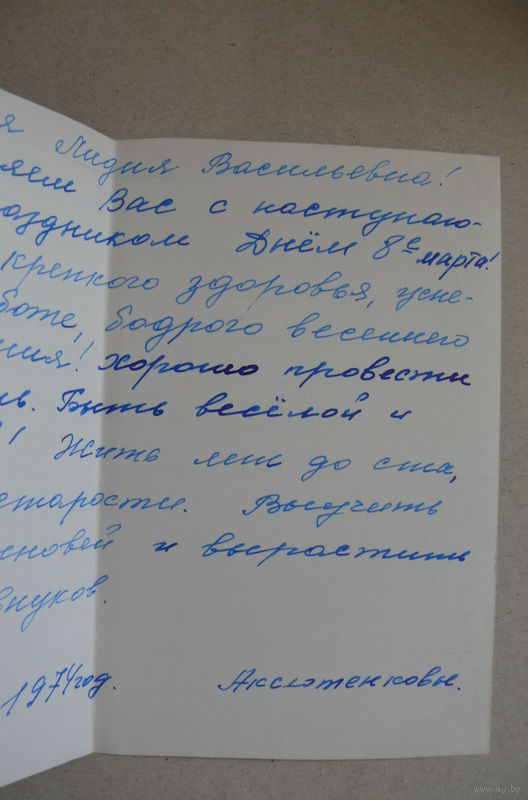 я Лидия Васильевна!
ляем Вас с наступаю-
раздником Днём 8е марта!
крепкого здоровья, успе-
боте, бодрого весеннего
ния! Хорошо провести
нь. Быть весёлой и
! Жить лет до ста,
старости. Выучить
сыновей и вырастить
внуков.
1974год. Аксютенковы.
www.ay.by